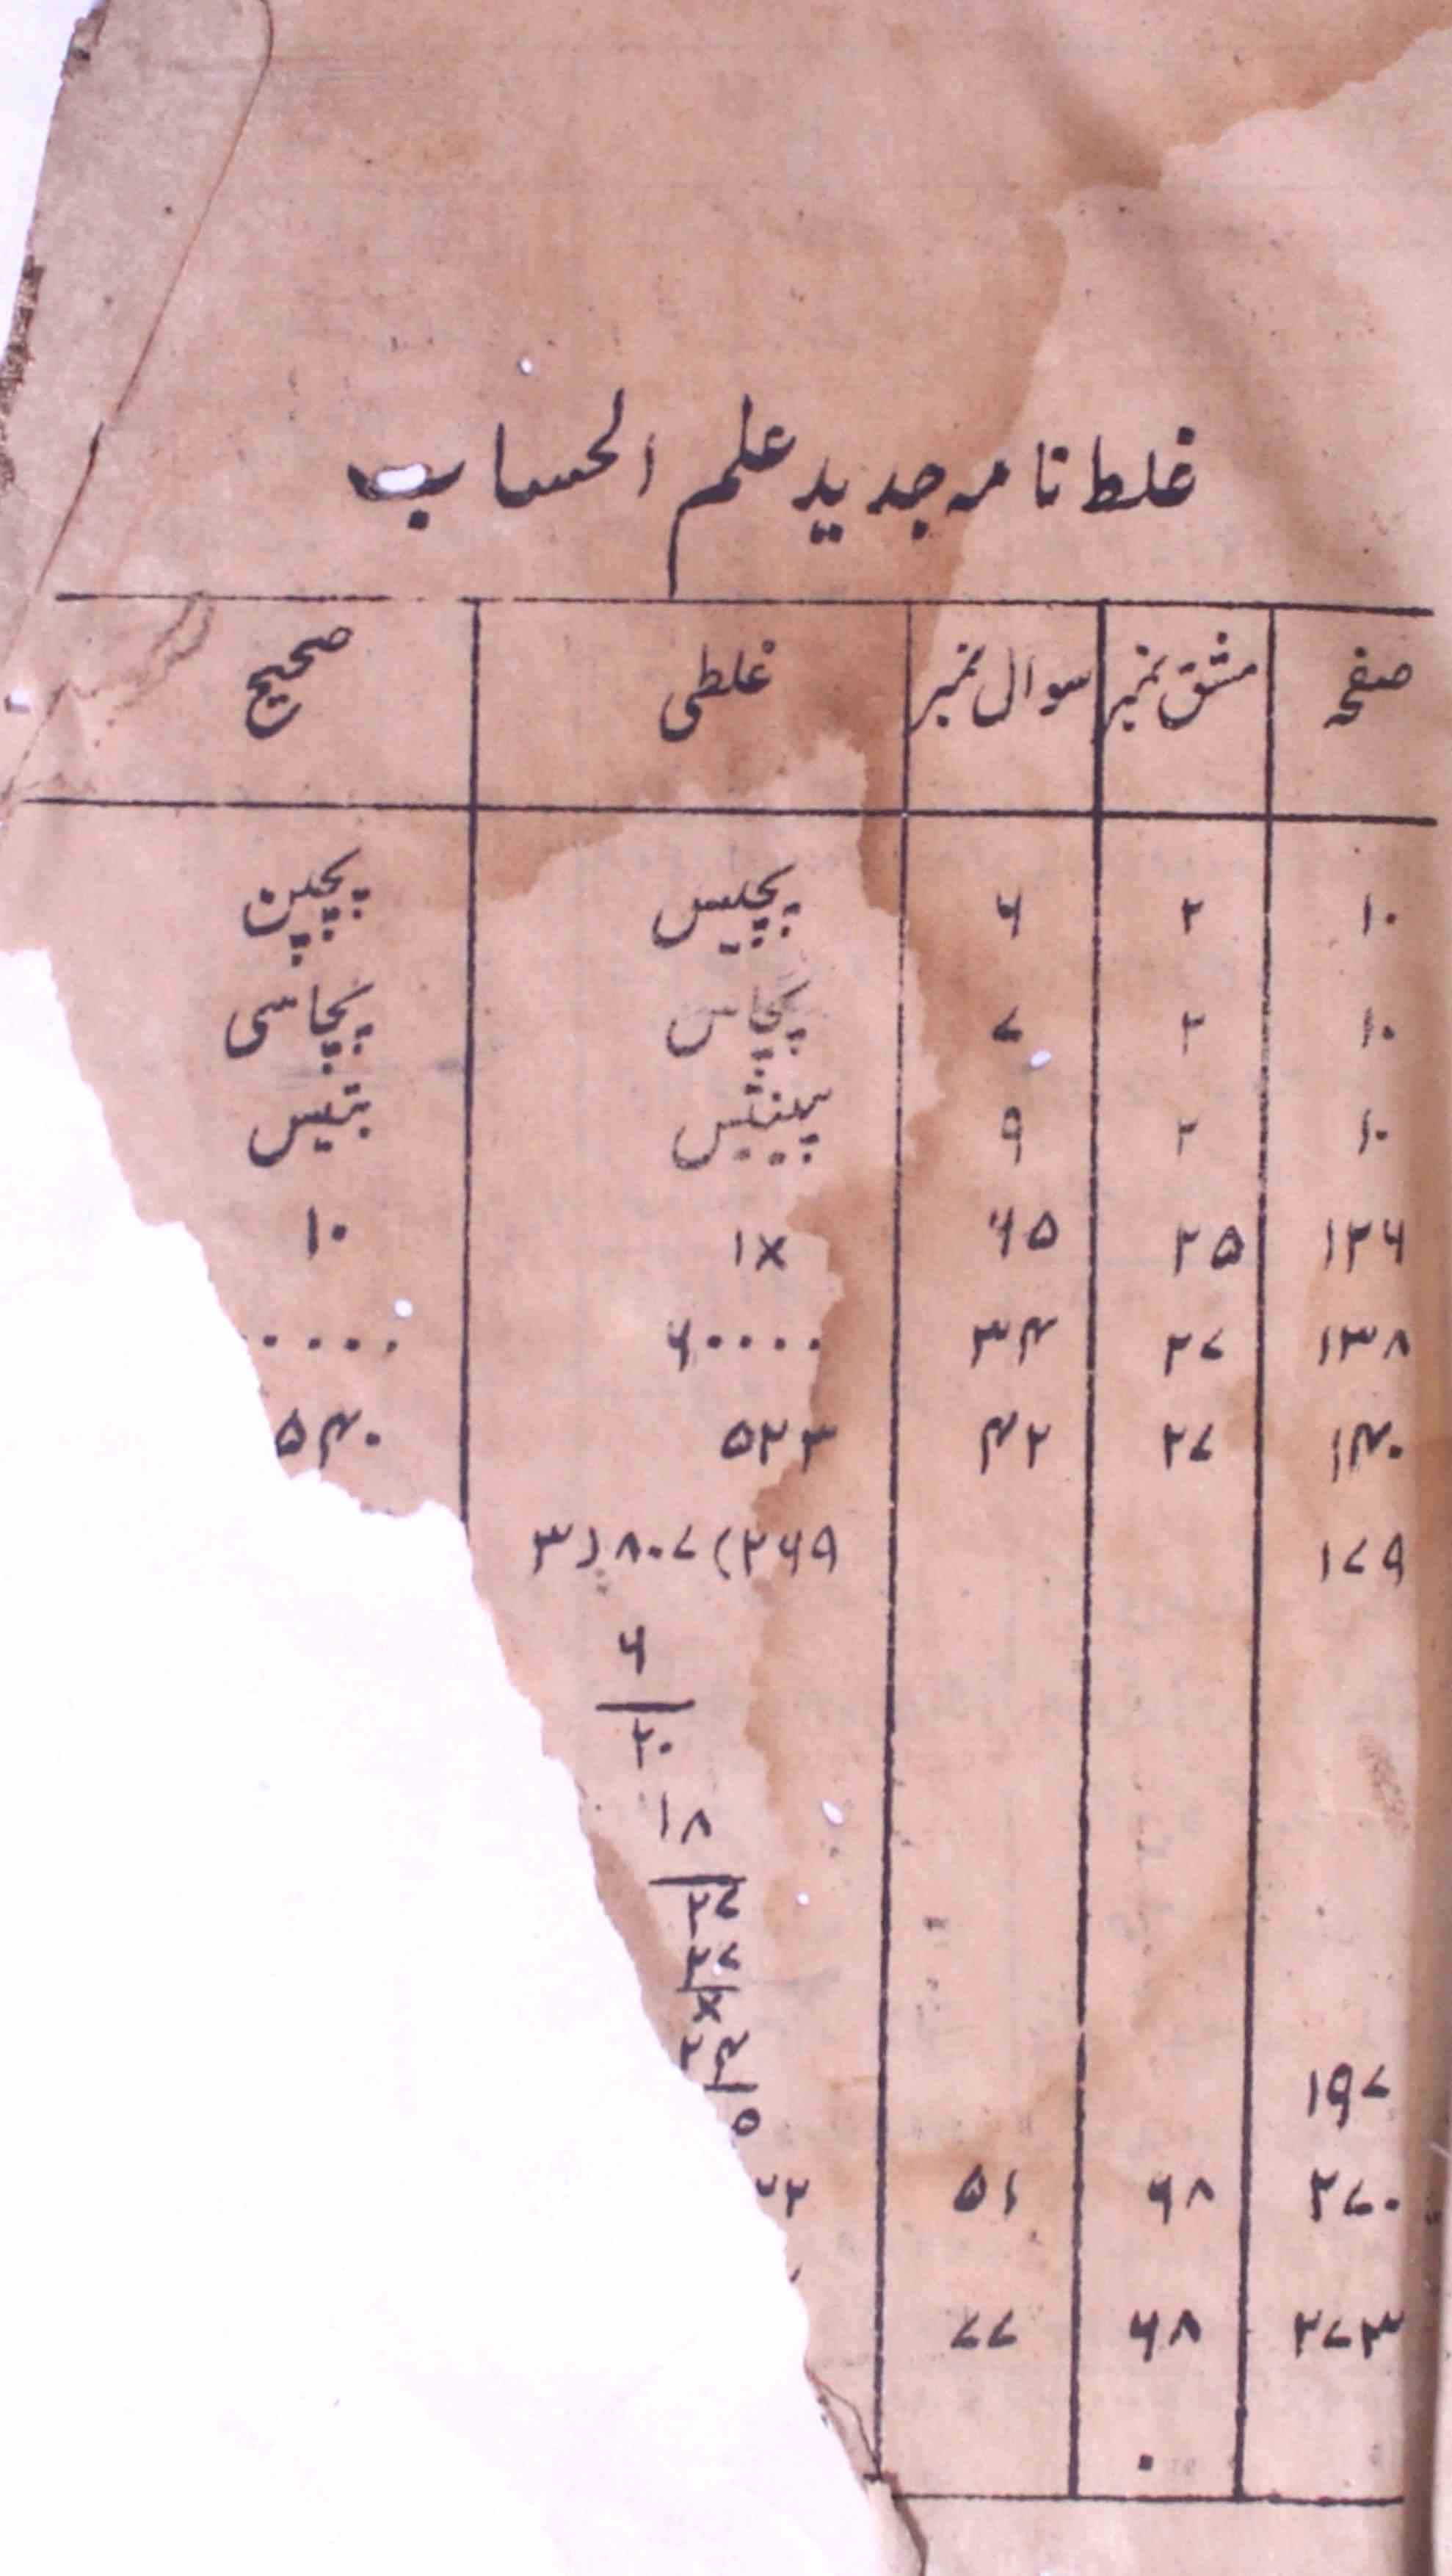 غلط نامہ جدید علم الحساب
صفحہ مشق نمبر سوال نمبر غلطی صحیح
۱۰ ۲ ۶ پچیس پچپن
۱۰ ۲ ۷ پچاس پچاسی
۱۰ ۲ ۹ پینتیس بتیس
۱۲۶ ۲۵ ۶۵ ۱× ۱۰
۱۳۸ ۲۷ ۳۴ ۶۰۰۰۰
۱۴۰ ۲۷ ۴۲ ۵۲۳ ۵۴۰
۱۷۹ ۳)۸۰۷(۲۶۹
۶
۲۰
۱۸
۲۷
۲۷
×
۲۴
۱۹۷ ۵
۲۷۰ ۶۸ ۵۱
۲۷۳ ۶۸ ۷۷